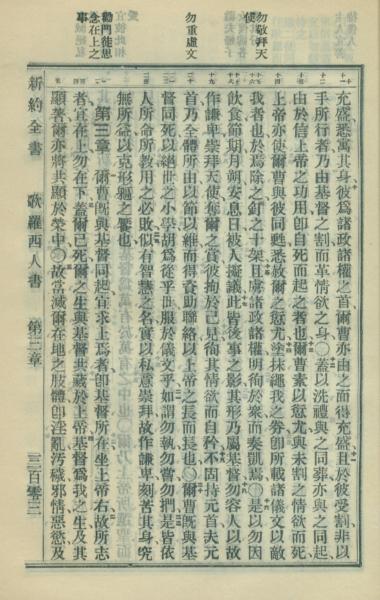 勿敬拜天
使
勿重虛文
勸門徒思
念在上之
事
充盛悉寓其身彼爲諸政諸權之首爾曹亦由之而得充盛且於彼受割非以
手所行者乃由基督之割而革情欲之身〇蓋以洗禮與之同葬亦與之同起
由於信上帝之功用卽自死而起之者也爾曹素以愆尤與未割之情欲而死
上帝亦使爾曹與彼同甦悉赦爾之愆尤塗抹繩我之券卽所載諸儀文以敵
我者也於焉除之釘之十架且虜諸政諸權明徇於衆而奏凱焉〇是以勿因
飲食節期月朔安息日被人擬議此皆後事之影其形乃屬基督勿容人以故
作謙卑崇拜天使奪爾之賞彼拘於己見徇其情欲而自矜不固持元首夫元
首乃全體所由以節以維而得資助聯絡以上帝之長而長也〇爾曹旣與基
督同死以絕世之小學胡爲從乎世服於儀文乎如謂勿執勿嘗勿捫是皆依
人所命所教用之必敗似有智慧之名實以私意崇拜故作謙卑刻苦其身究
無所益以克形軀之饕也
第三章 爾曹旣與基督同起宜求上焉者卽基督所在坐上帝右故所志
者宜在上勿在下蓋爾已死爾之生與基督共藏於上帝基督爲我之生及其
顯著爾亦將共顯於榮中〇故當滅爾在地之肢體卽淫亂汚穢邪情惡慾及
新約全書 歌羅西人書 第三章 三百零三